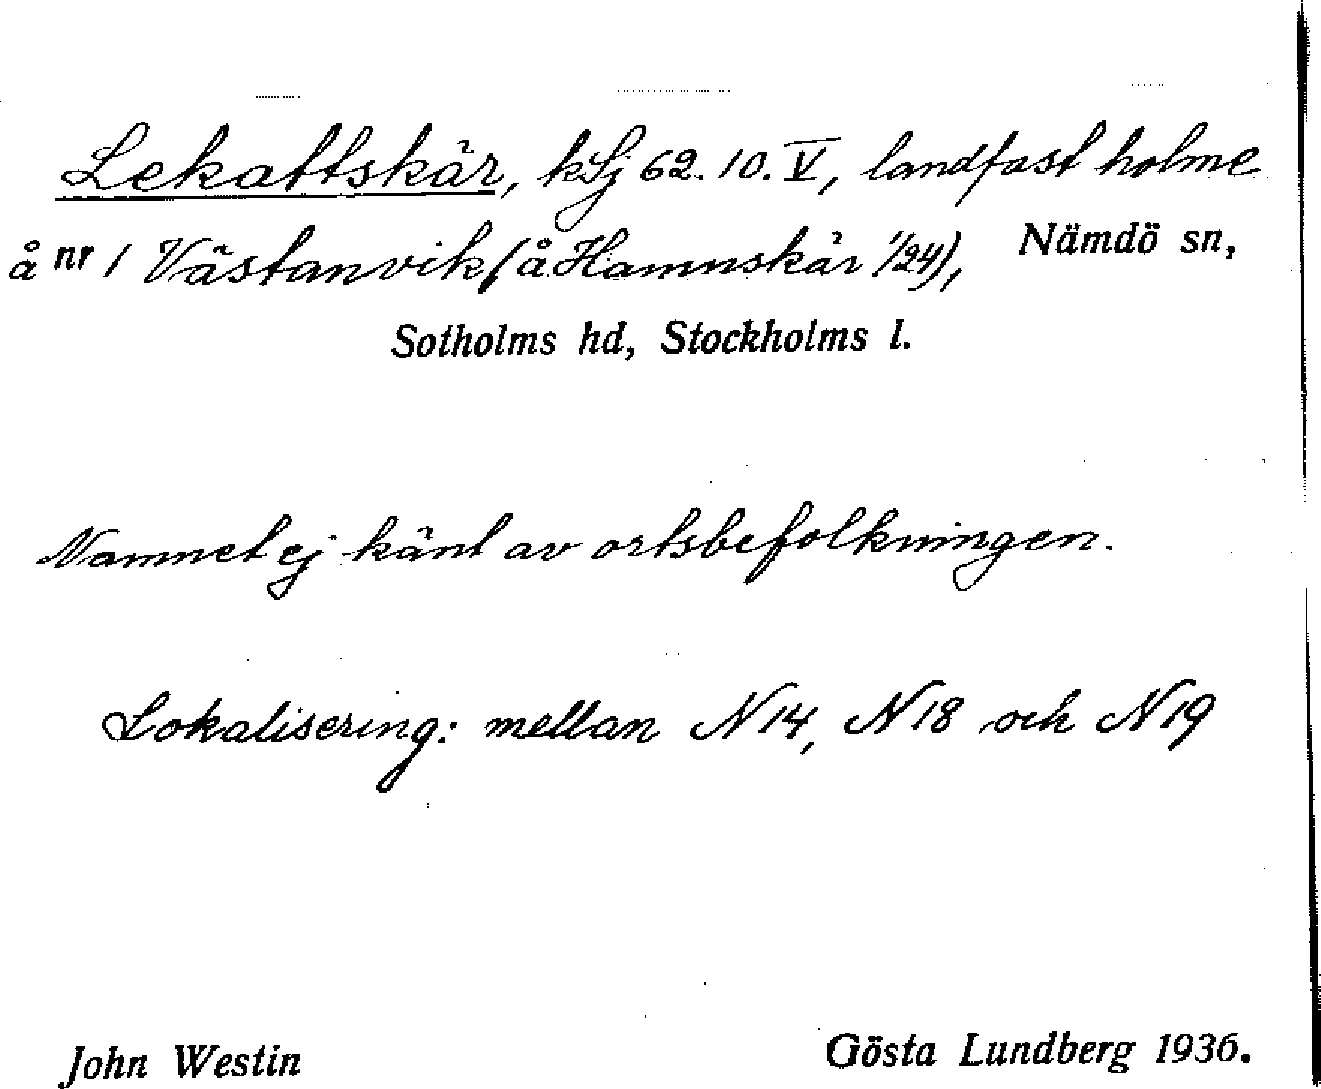 Lekattskär, kSj 62.10.V, landfast holme
å nr 1 Västanvik (å Hamnskär 1/24), Nämdö sn,
Sotholms hd, Stockholms l.
Namnet ej känt av ortsbefolkningen.
Lokalisering: mellan N14, N18 och N19
John Westin Gösta Lundberg 1936.